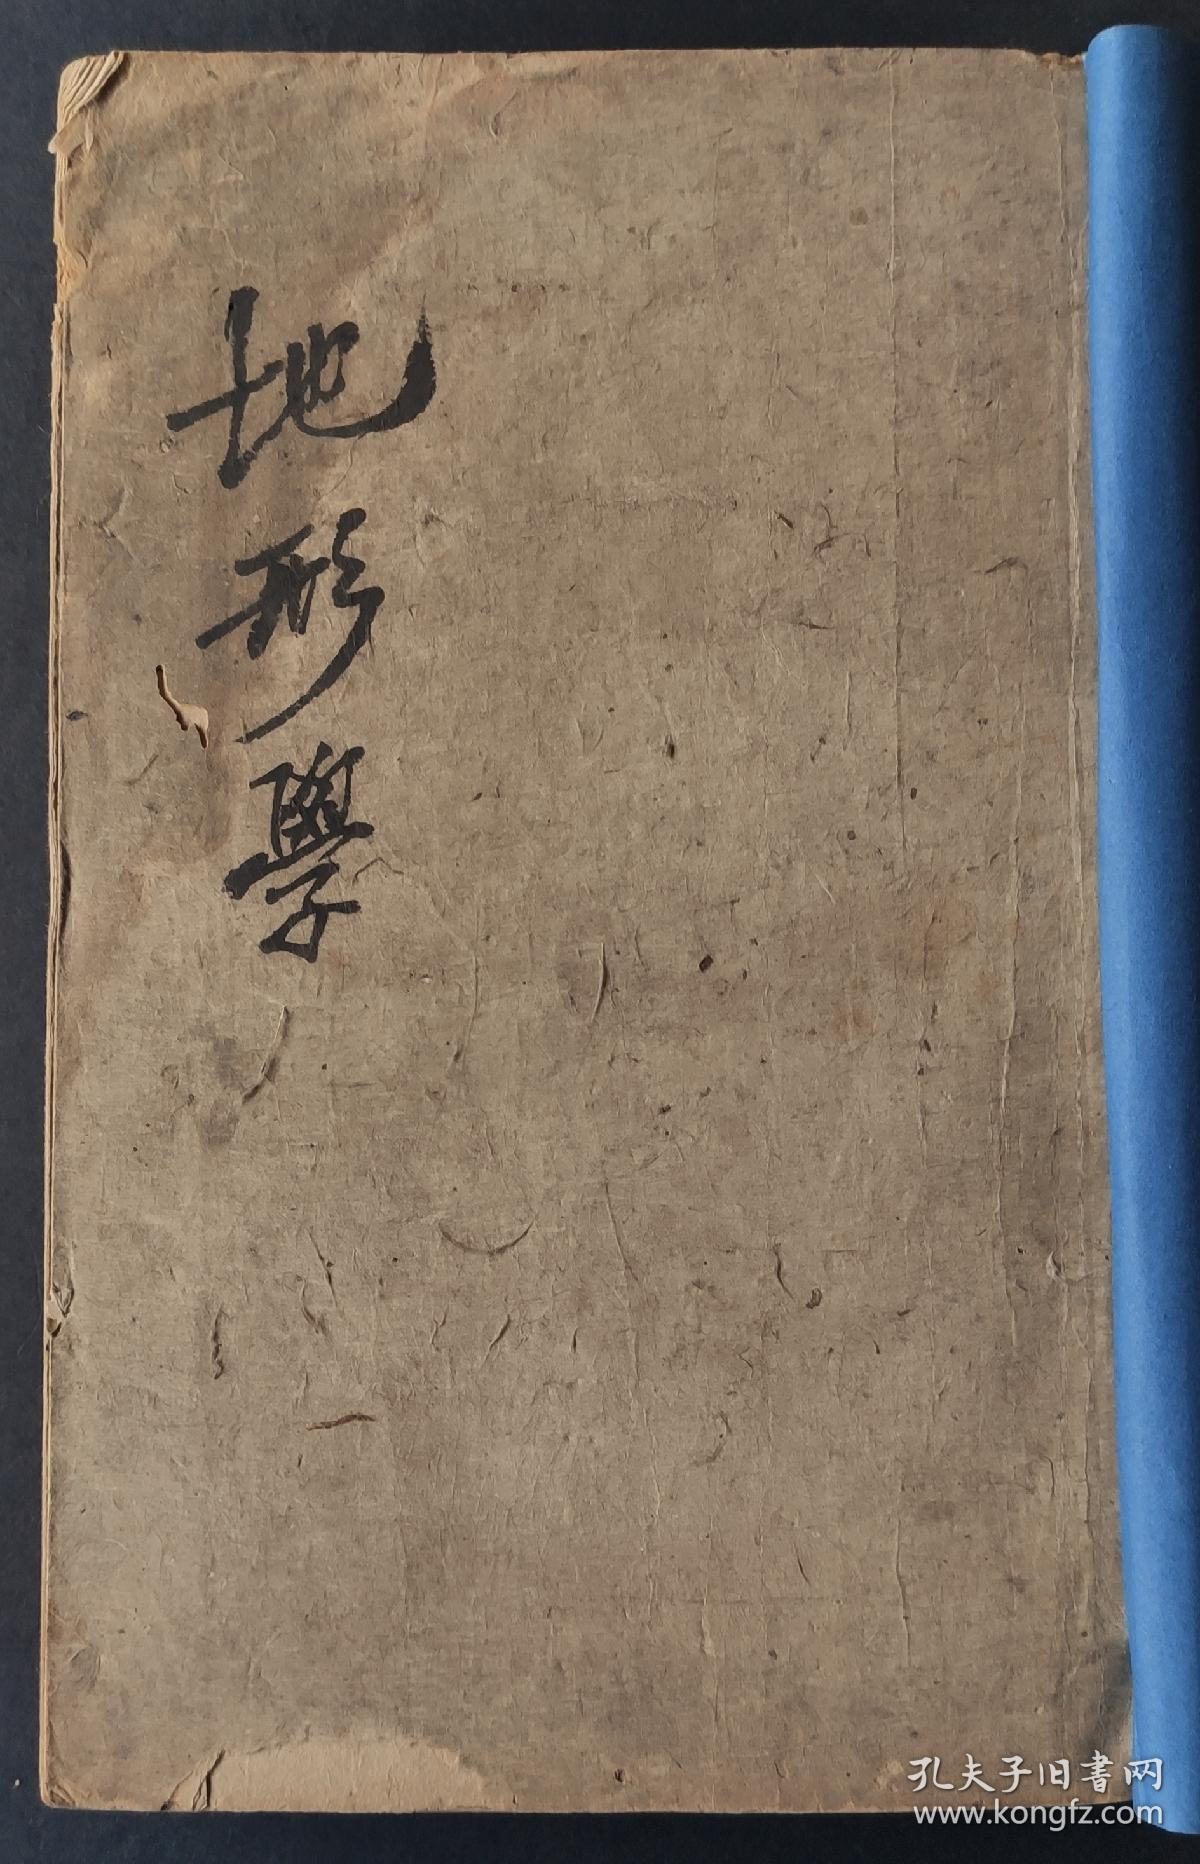 地形學
孔夫子旧書网
www.kongfz.com